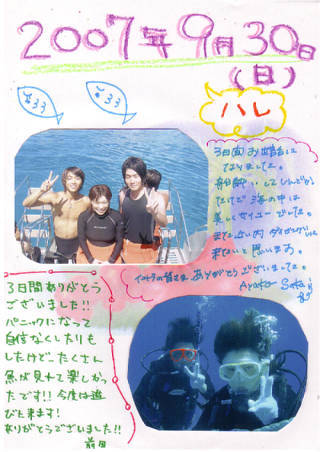 2007年9月30日
(日)
ハレ
3日間お世話に
なりました。
船酔いしてしんどかっ
たけど海の中は
美しくサイコーでした。
また近い内ダイビングしに
来たいと思います。
イントラの皆さまありがとうございました。
Ayako
3日間ありがとう
ございました!!
パニックになって
自信なくしたりも
したけど、たくさん
魚が見れて楽しかっ
たです!!今度は遊
びに来ます!
ありがとうございました!!
前田